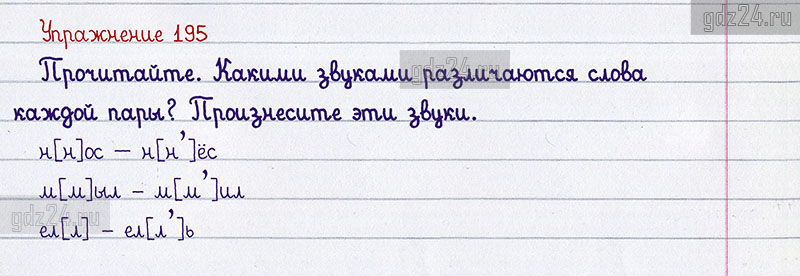 gdz24.ru
Упражнение 195
Прочитайте. Какими звуками различаются слова
gdz24.ru
каждой пары? Произнесите эти звуки.
н[н]ос – н[н’]ёс
м[м]ыл – м[м’]ил
gdz24.ru
ел[л] – ел[л’]ь